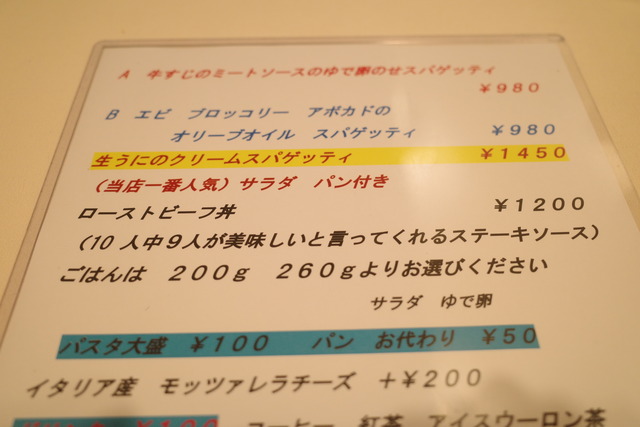 A 牛すじのミートソースのゆで卵のせスパゲッティ
￥980
B エビ ブロッコリー アボカドの
オリーブオイル スパゲッティ ￥980
生うにのクリームスパゲッティ ￥1450
（当店一番人気）サラダ パン付き
ローストビーフ丼 ￥1200
（10人中９人が美味しいと言ってくれるステーキソース）
ごはんは 200ｇ 260ｇよりお選びください
サラダ ゆで卵
パスタ大盛 ￥100 パン お代わり ￥50
イタリア産 モッツァレラチーズ ＋￥200
￥100 コーヒー 紅茶 アイスウーロン茶